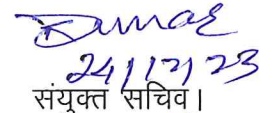 24/12/23
संयुक्त सचिव।